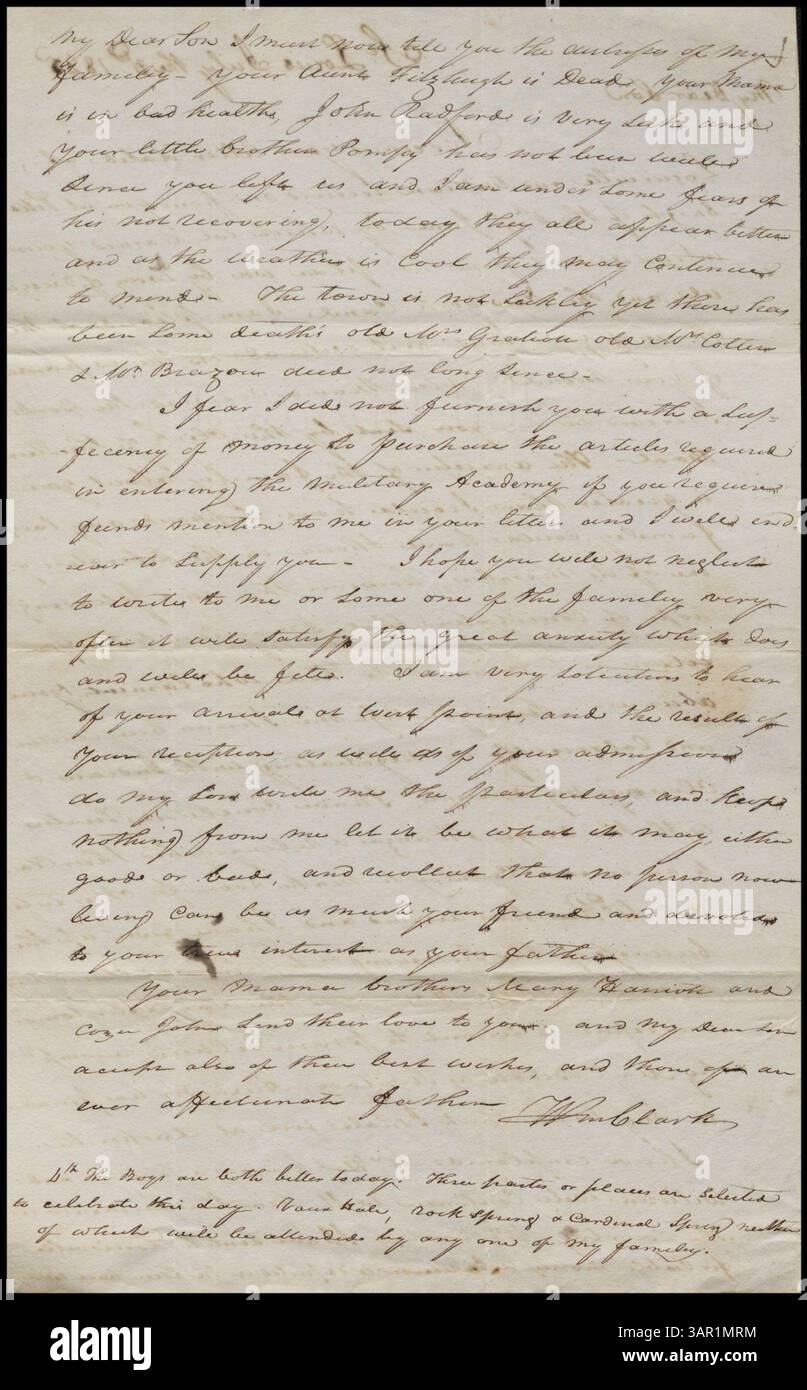 My Dear Son I must now tell you the distress of my
famiely – your Aunt Fitzhugh is Dead your Mama
is in bad health, John Radford is very Sick, and
your little brother Pompy has not been well
Since you left us and I am under Some fears of
his not recovering, today they all appear better
and as the weather is Cool they may Continue
to mend – The town is not Sickley yet there has
been Some death's old Mrs Gratiott old Mr
& Mr died not long Sence –
I fear I did not furnish you with a Suf-
-ficency of money to purchase the articles required
in entering the Military Academy if you require
funds mention to me in your letter and I will end
ever to Supply you – I hope you will not neglect
to write to me or Some one of the famiely very
often it will satisfy the great anxiety which does
and will be felt. I am very solicitious to hear
of your arrival at West point, and the result of
your reception, as well as of your admission
do my Son write me the particulars, and keep
nothing from me let it be what it may, either
good or bad, and recollect that no person now
living Can be as much your friend and devoted
to your true interest as your father
Your Mama brothers Mary Harriott and
Cozn John Send their love to you and My Dear Son
accept also of their best wishes, and those of an
ever affectunate father Wm Clark
4th The Boys are both better today. Three parties or places are Selected
to celebrate this day. Vaux Hale, rock Spring & Cardinal Spring neither
of which will be attended by any one of my famiely.
alamy
Image ID: 3AR1MRM
www.alamy.com